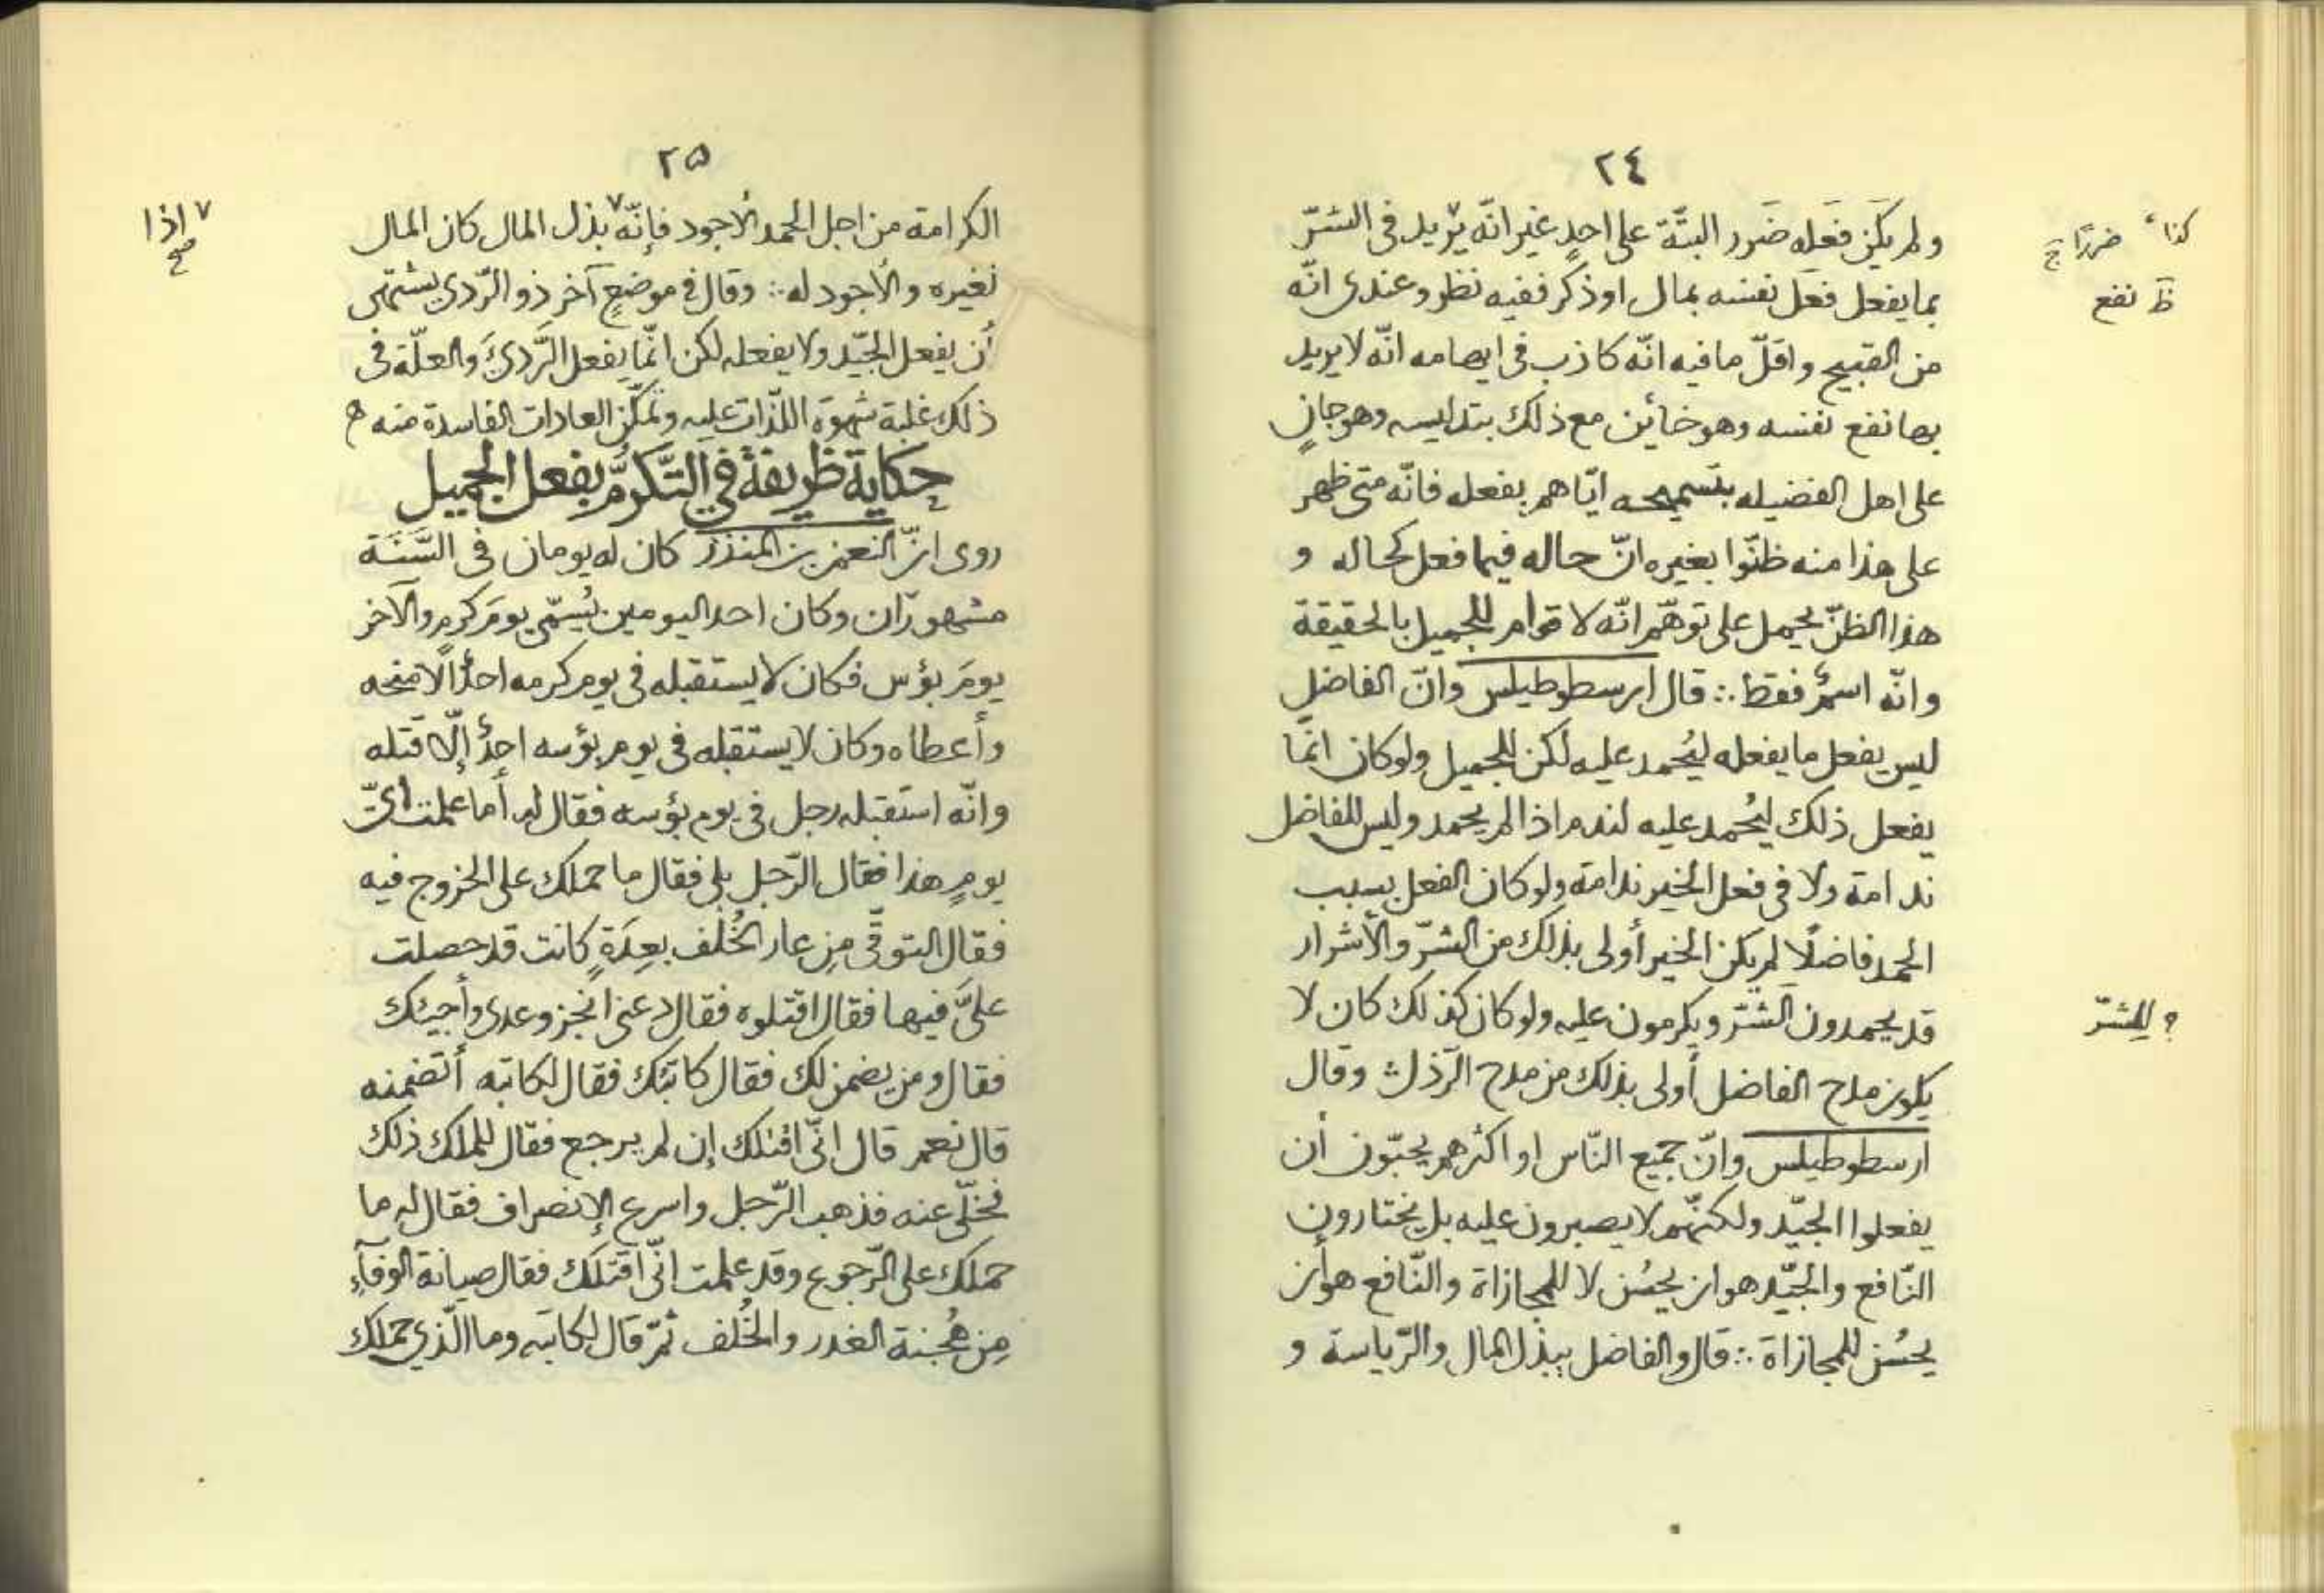 ٢٤
ولم يكن فعله ضرر البتّة على احدٍ غير انّه يزيد فى الشرّ
كذا ضررًا ج
بما يفعل فعل نفسه بمال او ذكر ففيه نظر وعندى انّه
ظ نفع
من القبيح واقلّ ما فيه انّه كاذب فى ايهامه انّه لا يريد
بها نفع نفسه وهو خائن مع ذلك بتدليسه وهو جانٍ
على اهل الفضيله ايّاهم بفعله فانّه متى ظهر
على هذا منه ظنّوا بغيره انّ حاله فيما فعل كحاله و
هذا الظنّ يحمل على توهّم انّه لا قوام للجميل بالحقيقة
وانّه اسمٌ فقط ∴ قال ارسطوطيلس وانّ الفاضل
ليس يفعل ما يفعله ليُحمد عليه لكن للجميل ولو كان انّما
يفعل ذلك ليُحمد عليه لندم اذا لم يحمد وليس للفاضل
ندامة ولا فى فعل الخير ندامة ولو كان الفعل بسبب
الحمد فاضلًا لم يكن الخير أولى بذلك من الشرّ والأشرار
قد يحمدون الشرّ ويكرمون عليه ولو كان كذلك كان لا
؟ للشرّ
يكون مدح الفاضل أولى بذلك من مدح الرّذل وقال
ارسطوطيلس وانّ جميع النّاس او اكثرهم يحبّون أن
يفعلوا الجيّد ولكنّهم لا يصبرون عليه بل يختارون
النّافع والجيّد هو ان يحسُن لا للمجازاة والنّافع هو أن
يحسُن للمجازاة ∴ قال والفاضل يبذل المال والرّياسة و
٢٥
الكرامة من اجل الحمد الأجود فإنّه٧ بذل المال كان المال
٧ اذا صح
لغيره والأجود له ∴ وقال فى موضعٍ آخر ذو الرّدى يشتهى
أن يفعل الجيّد ولا يفعله لكن انّما يفعل الرّدىَّ والعلّة فى
ذلك غلبة شهوة اللذّات عليه وتمكّن العادات الفاسدة منه ه
حكاية ظريفة في التّكرّم بفعل الجميل
روى انّ النعمن بن المنذر كان له يومان فى السَّنَة
مشهوران وكان احد اليومين يُسمّى يومَ كرمٍ والآخر
يومَ بؤس فكان لا يستقبله فى يوم كرمه احدٌ الّا منحه
وأعطاه وكان لا يستقبله فى يوم بؤسه احدٌ إلّا قتله
وانّه استقبله رجل فى يوم بؤسه فقال له أما علمت أىّ
يومٍ هذا فقال الرّجل بلى فقال ما حملك على الخروج فيه
فقال التوقّى مِن عار الخُلف بعِدَةٍ كانت قد حصلت
علىَّ فيها فقال اقتلوه فقال دعنى انجز وعدى وأجيئك
فقال ومن يضمن لك فقال كاتبك فقال لكاتبه أتضمنه
قال نعم قال انّى اقتلك إن لم يرجع فقال للملك ذلك
فخلّى عنه فذهب الرّجل واسرع الإنصراف فقال له ما
حملك على الرّجوع وقد علمت انّى اقتلك فقال صيانة الوفآء
مِن هُجنة الغدر والخُلف ثمّ قال لكاتبه وما الّذي حملك